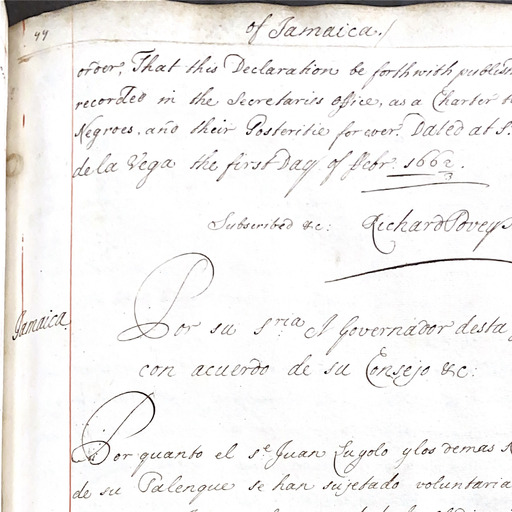 44
of Jamaica./
order, That this Declaration be forthwith publish
recorded in the Secretaris office, as a Charter t
Negroes, and their Posteritie for ever. Dated at S.
de la Vega the first Day of Febr. 1662/3.
Subscribed &c: Richard Povey S
Jamaica
Por su s.ria El Governador desta
con acuerdo de su Consejo &c:
Por quanto el s.r Juan Lugolo y los demas
de su Palenque se han sujetado voluntaria